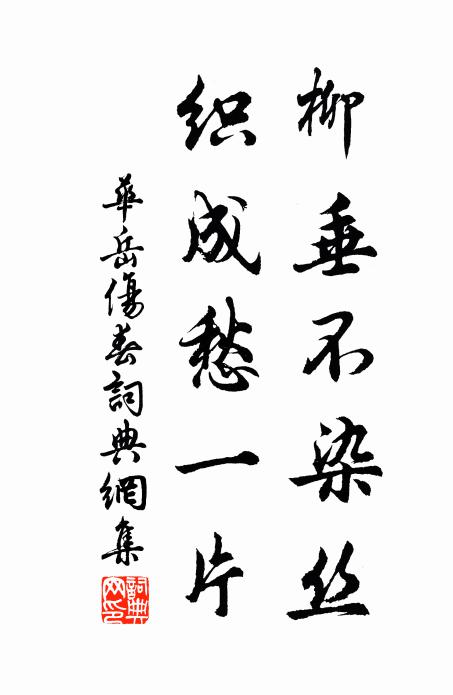 柳垂不染丝
织成愁一片
華岳傷春詞典網集
詞典网印